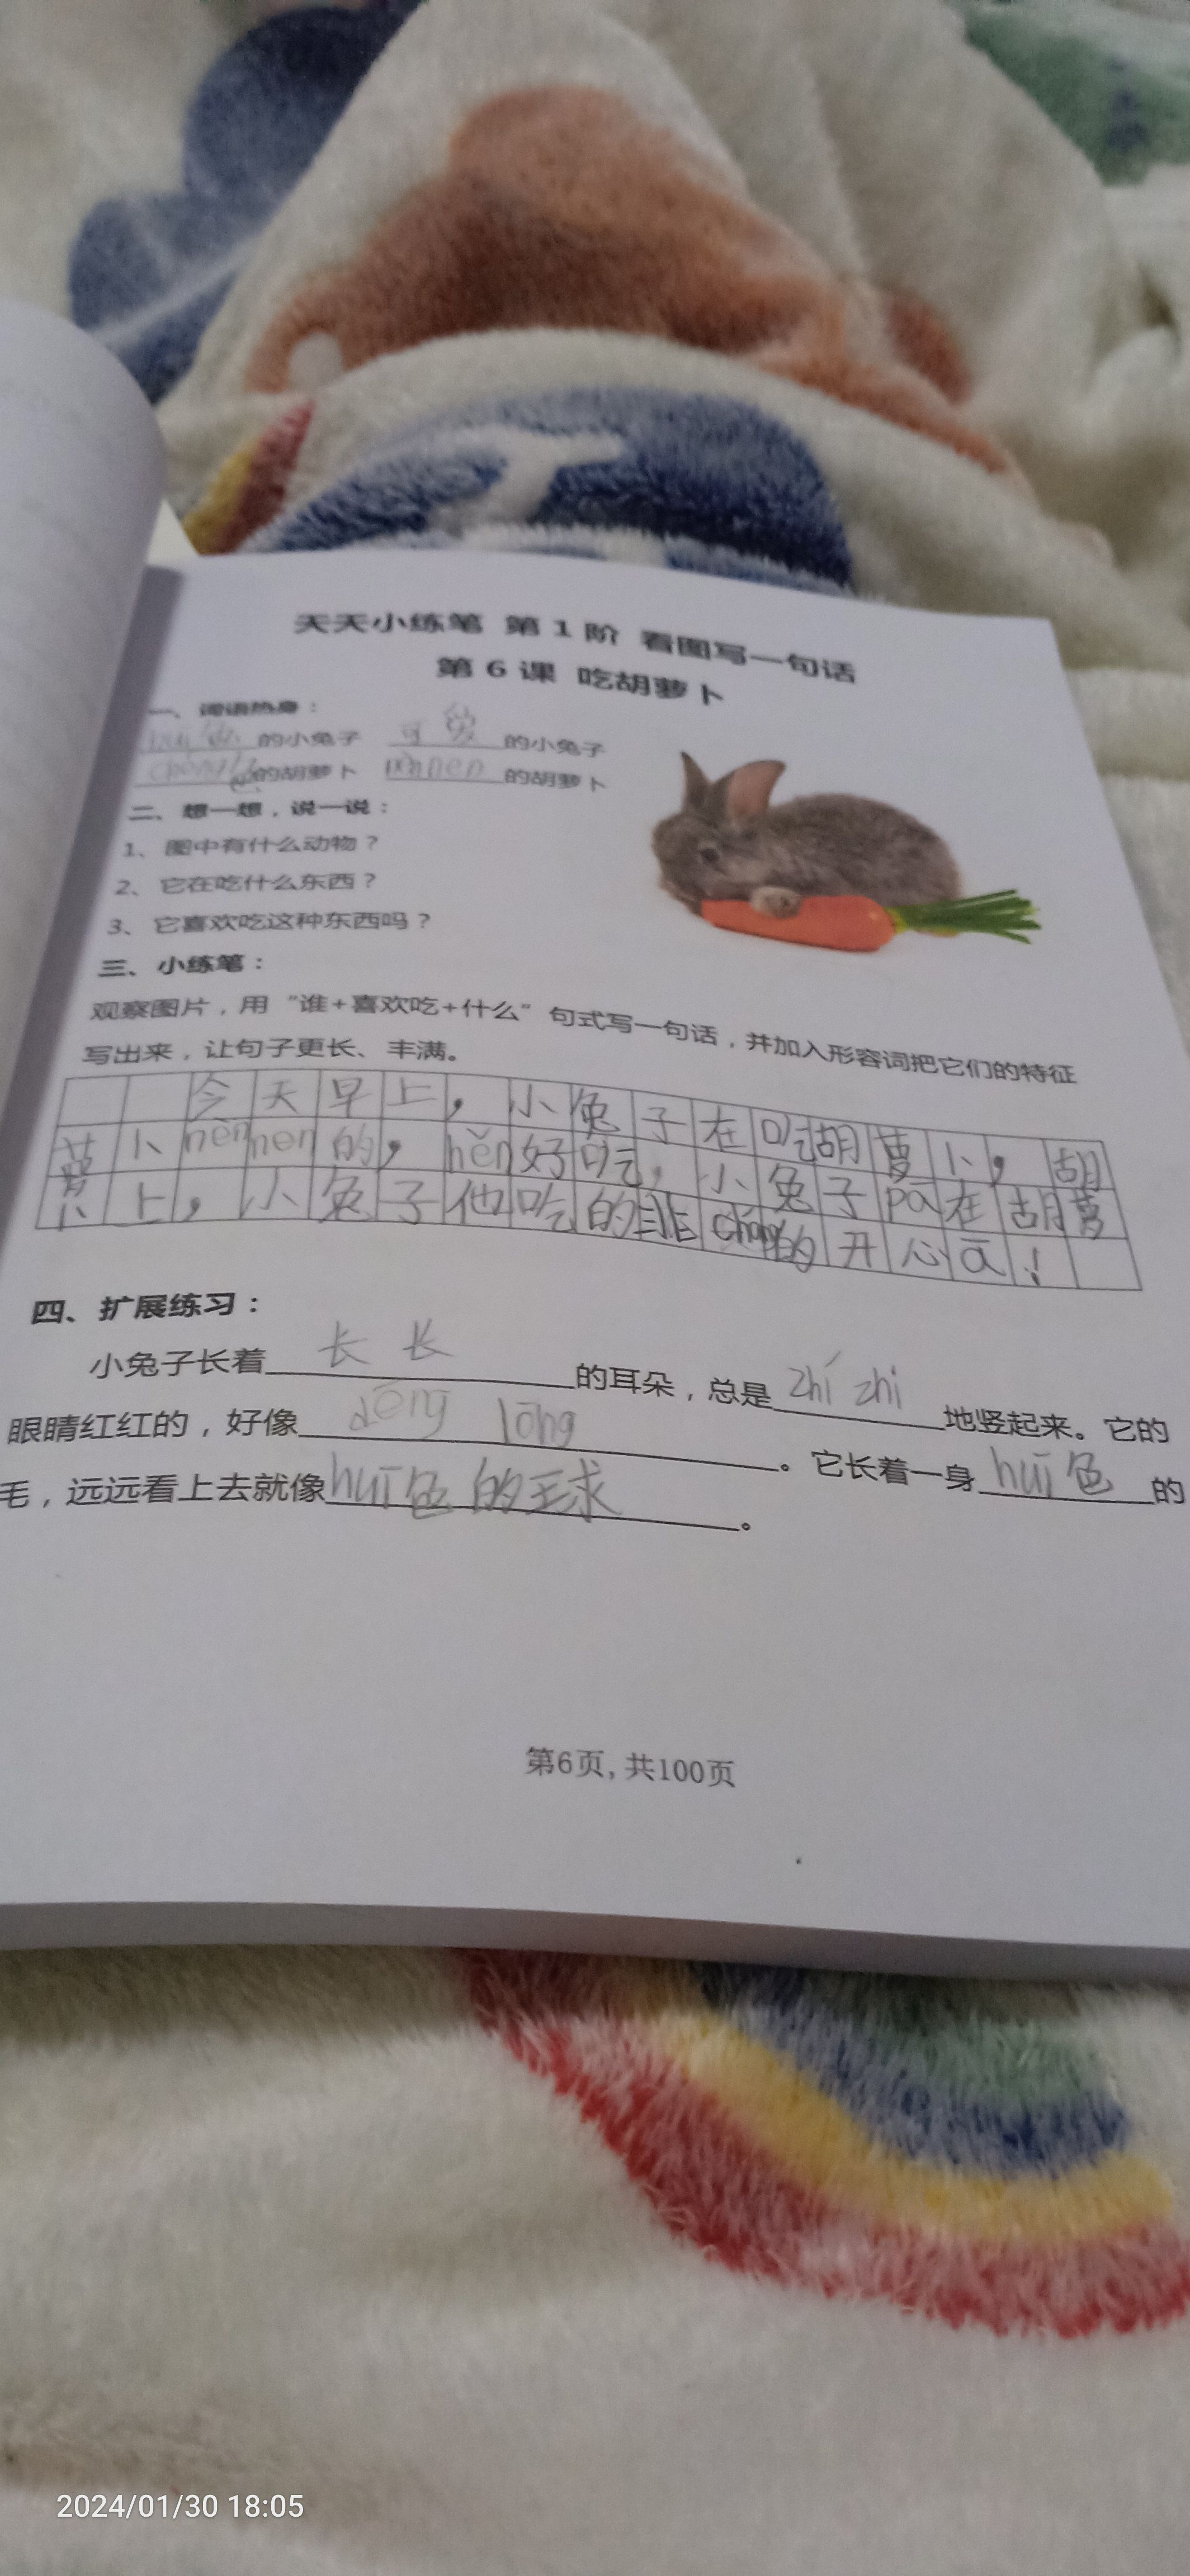 天天小练笔 第1阶 看图写一句话
第6课 吃胡萝卜
一、词语热身：
的小兔子 可爱的小兔子
的胡萝卜 的胡萝卜
二、想一想，说一说：
1、图中有什么动物？
2、它在吃什么东西？
3、它喜欢吃这种东西吗？
三、小练笔：
观察图片，用“谁+喜欢吃+什么”句式写一句话，并加入形容词把它们的特征
写出来，让句子更长、丰满。
今天早上，小兔子在吃胡萝卜，胡
萝卜nènnen的，hěn好吃，小兔子pā在胡萝
卜上，小兔子他吃的非cháng的开心ā！
四、扩展练习：
小兔子长着长长的耳朵，总是zhí zhí地竖起来。它的
眼睛红红的，好像dēng lōng。它长着一身huī色的
毛，远远看上去就像huī色的毛球。
第6页,共100页
2024/01/30 18:05